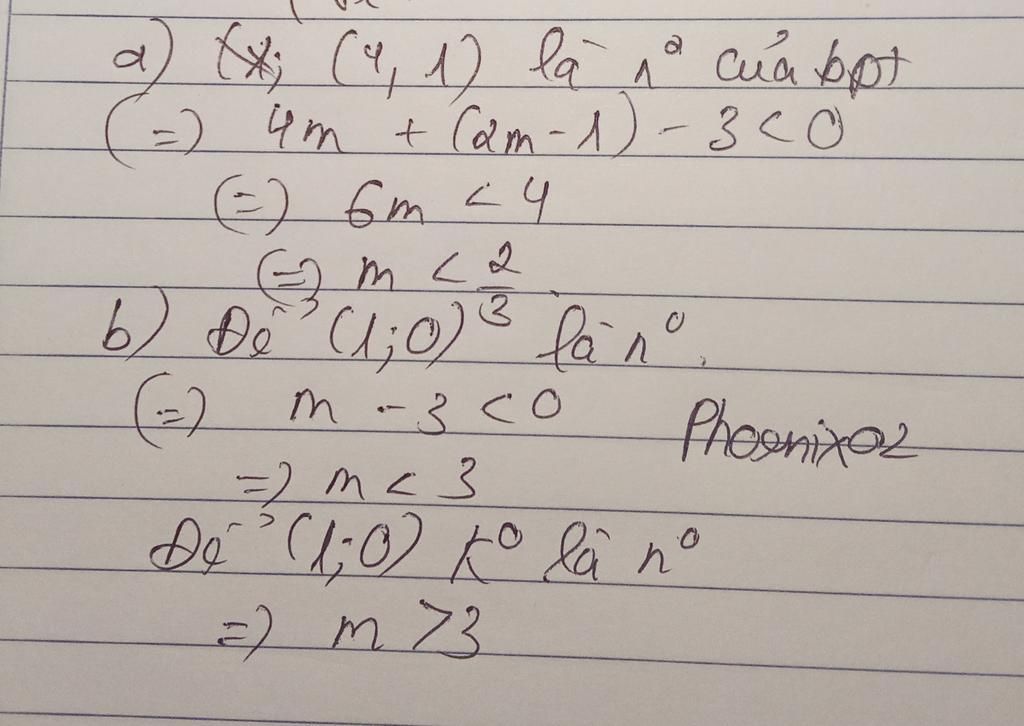 a) (x; (4, 1) là nº của bpt
(=) 4m + (2m-1) - 3 < 0
(=) 6m < 4
(=) m < 2/3
b) Để (1;0) là nº.
(=) m - 3 < 0
=) m < 3
Phoenix02
Để (1;0) kº là nº
=) m > 3